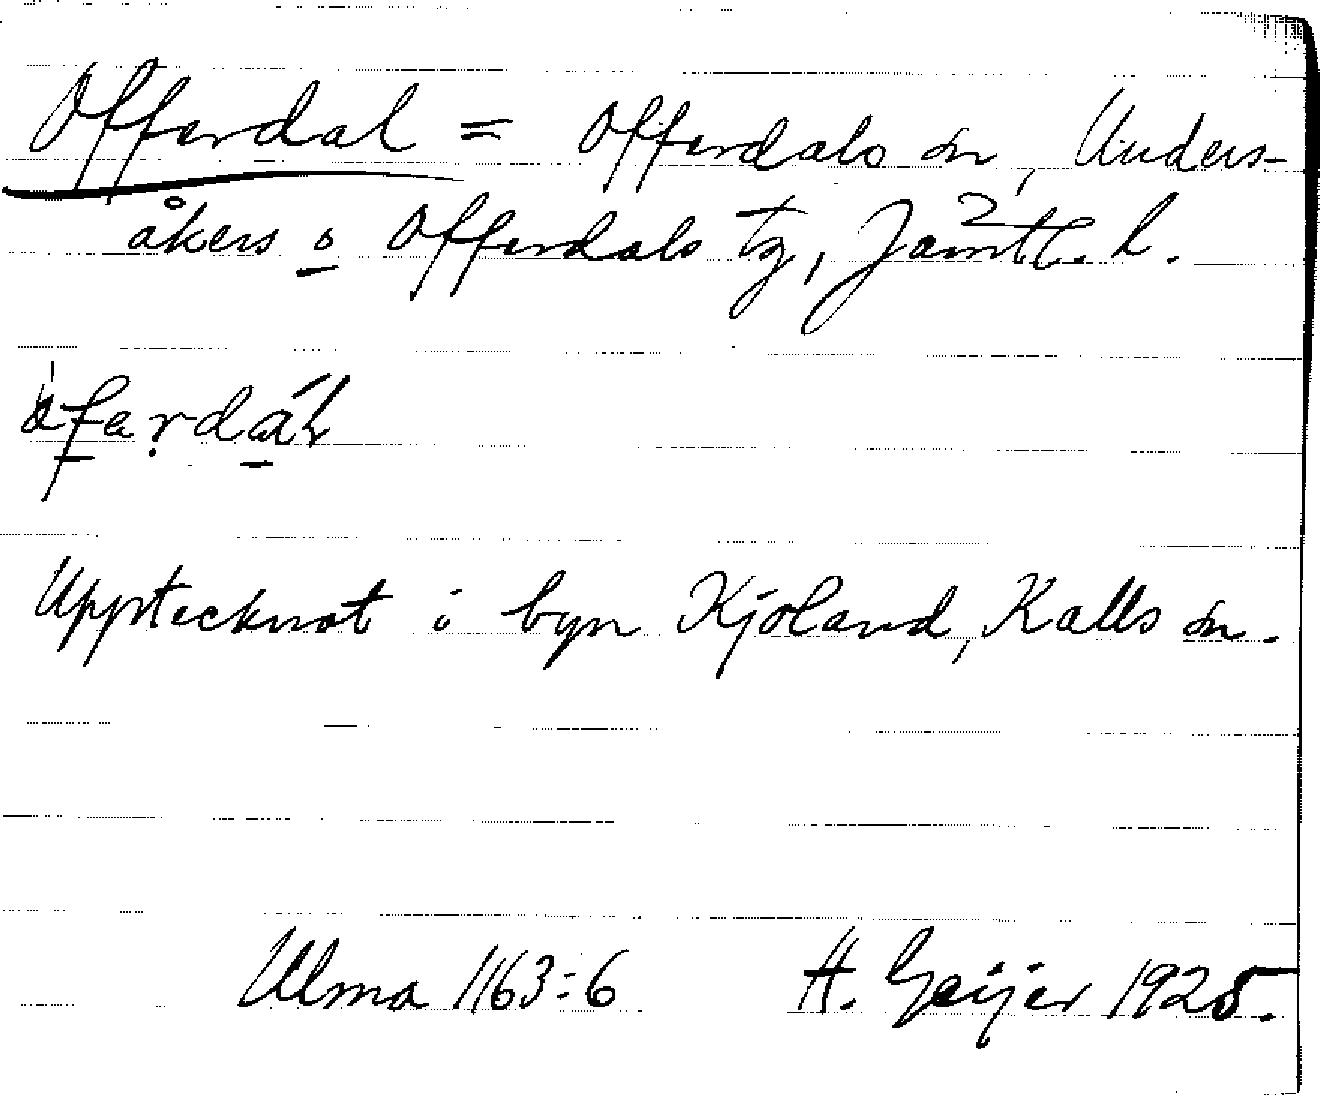 Offerdal = Offerdals sn, Unders-
åkers o Offerdals tg, Jämtl. l.
åfȧrdál
Upptecknat i byn Kjoland, Kalls sn.
Ulma 1163:6 H. Geijer 1925.